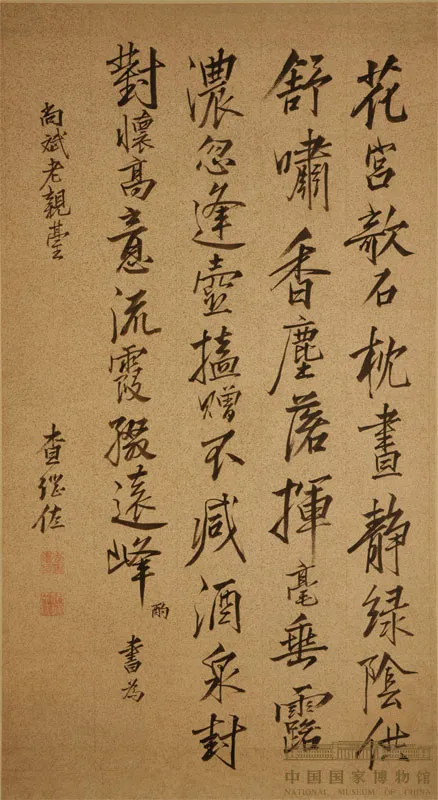 花宮欹石枕晝静緑陰供
舒嘯香塵落揮毫垂露
濃忽逢壺榼贈不減酒泉封
對懷高意流霞酹遠峰
酌
書為
尚斌老親臺
查繼佐
中国国家博物馆
NATIONAL MUSEUM OF CHINA